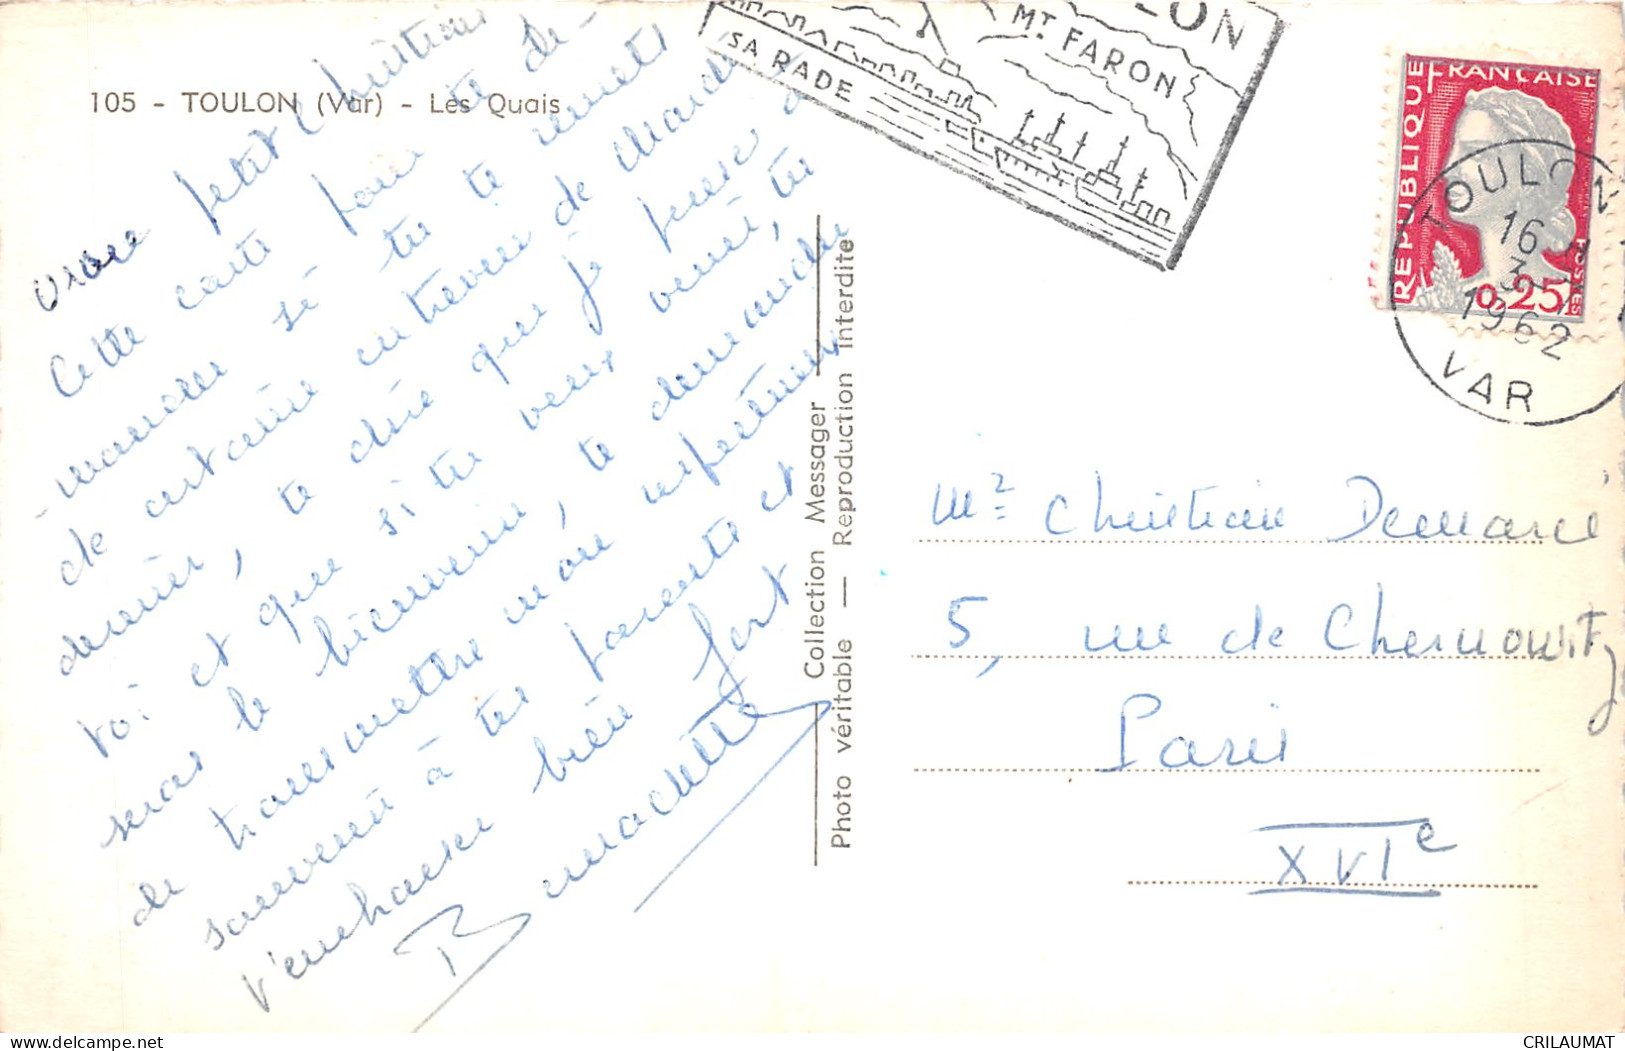 105 - TOULON (Var) - Les Quais
LON
MT. FARON
SA RADE
REPUBLIQUE FRANÇAISE
POSTES
0,25
TOULON
16 H
3
1962
VAR
mon petit Christian
Cette carte pour te de-
-mander si tu te remets
de certaine entrevue de Mardi
dernier, te dire que je pense à
toi et que si tu veux venir, tu
seras le bienvenu, te demander
de transmettre mon respectueux
souvenir à tes parents et
t'embrasser bien fort
Bernadette
Collection Messager
Photo véritable — Reproduction interdite
Mr Christian Demarne
5, rue de Chernowitz
Paris
XVIe
CRILAUMAT